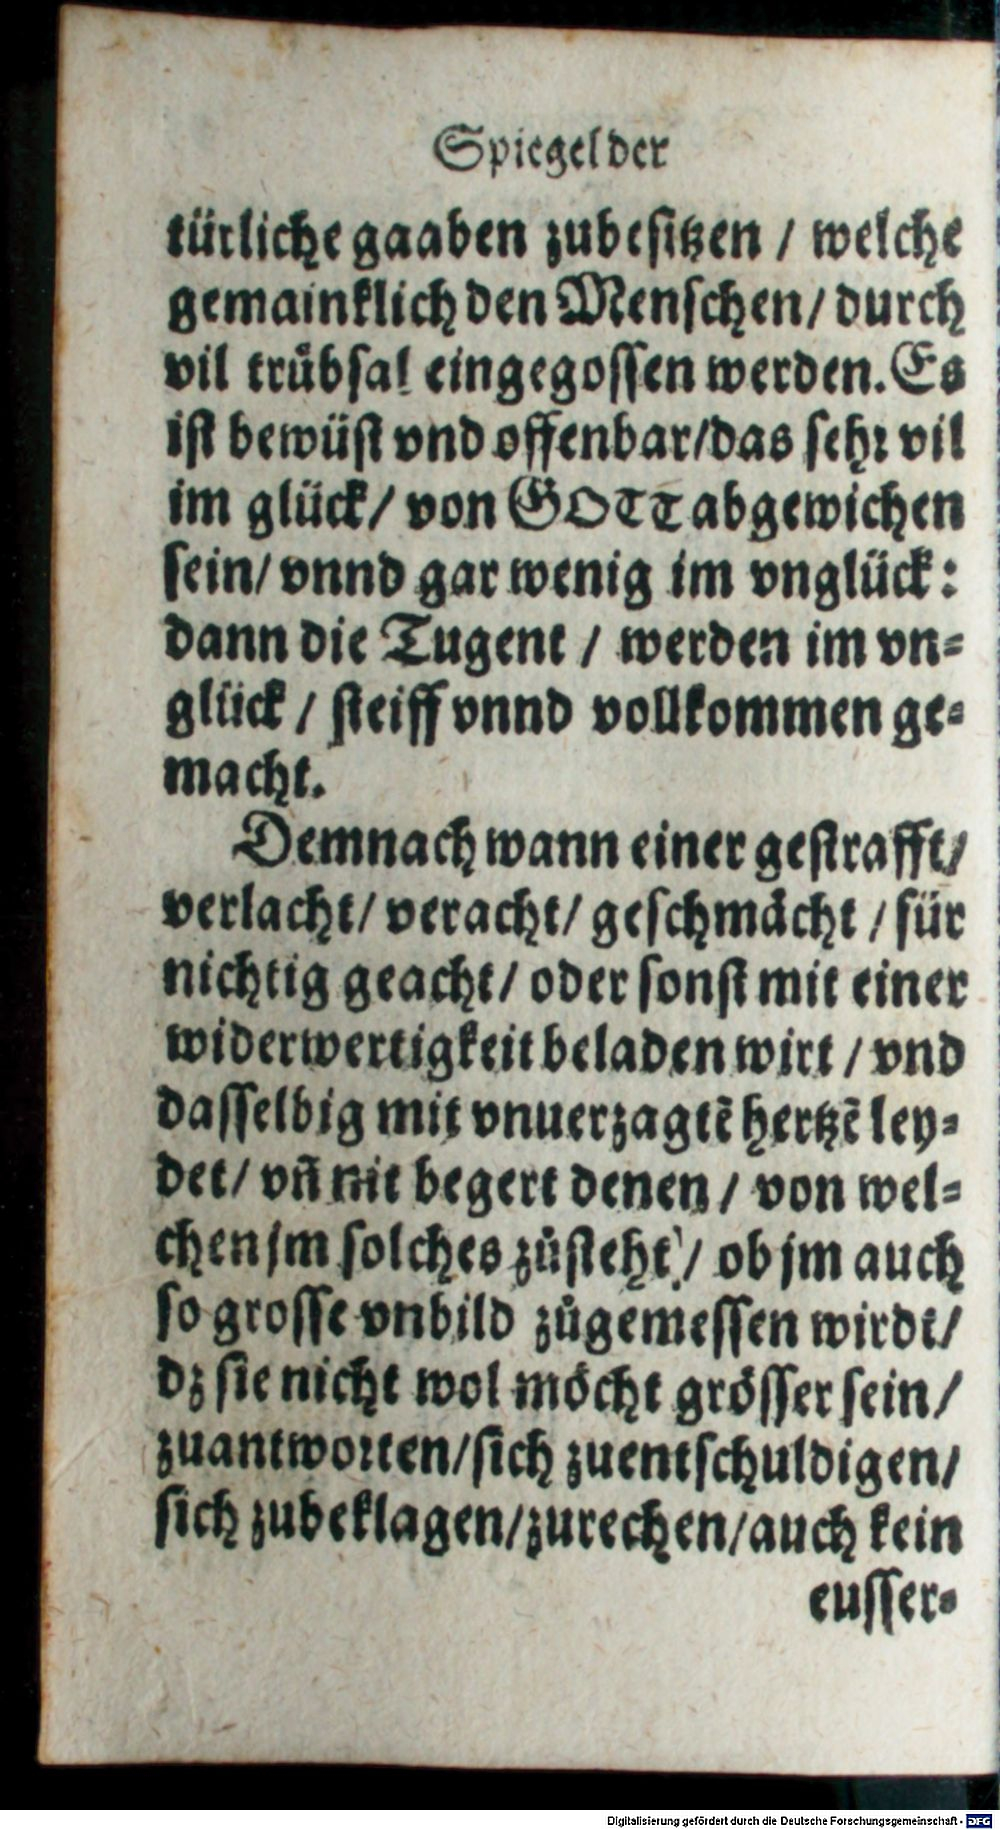 Spiegel der
türliche gaaben zubesitzen / welche
gemainklich den Menschen / durch
vil truͤbsal eingegossen werden. Es
ist bewüst vnd offenbar / das sehr vil
im glück / von GOTT abgewichen
sein / vnnd gar wenig im vnglück:
dann die Tugent / werden im vn-
glück / steiff vnnd vollkommen ge-
macht.
Demnach wann einer gestrafft /
verlacht / veracht / geschmaͤcht / für
nichtig geacht / oder sonst mit einer
widerwertigkeit beladen wirt / vnd
dasselbig mit vnuerzagtē hertzē ley-
det / vn̄ nit begert denen / von wel-
chen jm solches zůsteht / ob jm auch
so grosse vnbild zůgemessen wirdt /
dz sie nicht wol moͤcht groͤsser sein /
zuantworten / sich zuentschuldigen /
sich zubeklagen / zurechen / auch kein
eusser-
Digitalisierung gefördert durch die Deutsche Forschungsgemeinschaft - DFG